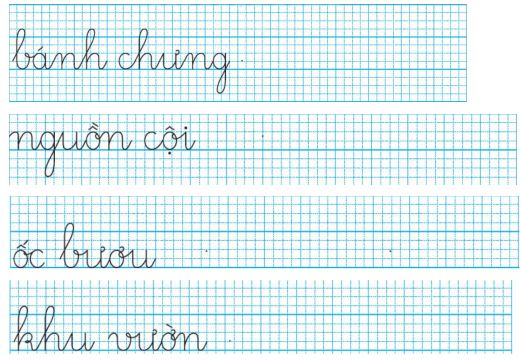 bánh chưng
nguồn cội
ốc bươu
khu vườn